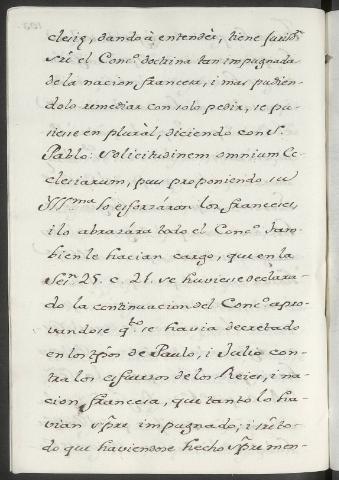 clesiæ, dando à entendèr, tiene juris.ⁿ
srẽ el Conc.º doctrina tan impugnada
de la nacion francesa, i mas pudien-
dolo remediar con solo pedir, se pu-
siesse en pluràl, diciendo con S.
Pablo: Solicitudinem omnium Ec-
clesiarum, pues proponiendo su
Yll.ma lo esforzáran los franceses,
i lo abrazára todo el Conc.º Tam-
bien le hacian cargo, que en la
Ses.n 25. c. 21. se huviesse declara-
do la continuacion del Conc.º apro-
vandose q.to se havia decretado
en los tpos de Paulo, i Julio con-
tra los esfuerzos de los Reies, i na-
cion francesa, que tanto lo ha-
vian spre impugnado; i srẽ to-
do que haviendose hecho spre men-